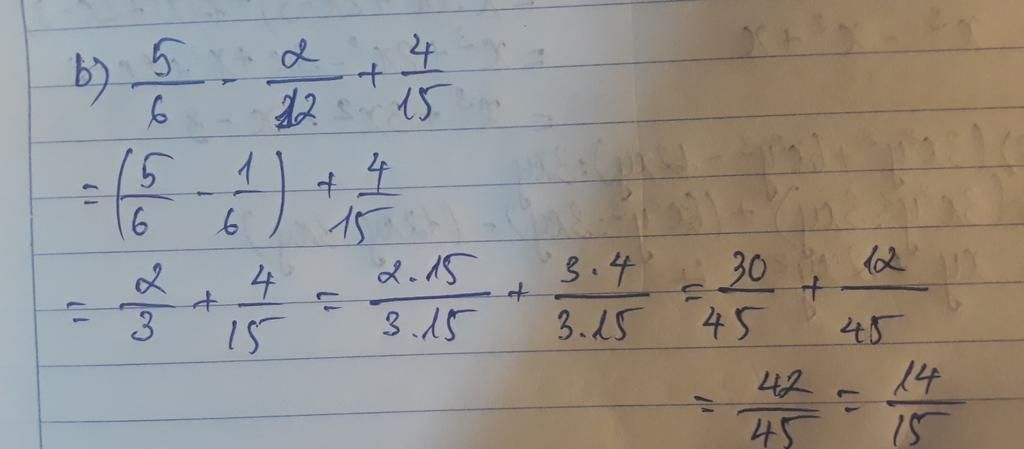 b) 5/6 - 2/12 + 4/15
= (5/6 - 1/6) + 4/15
= 2/3 + 4/15 = 2.15/3.15 + 3.4/3.15 = 30/45 + 12/45
= 42/45 = 14/15